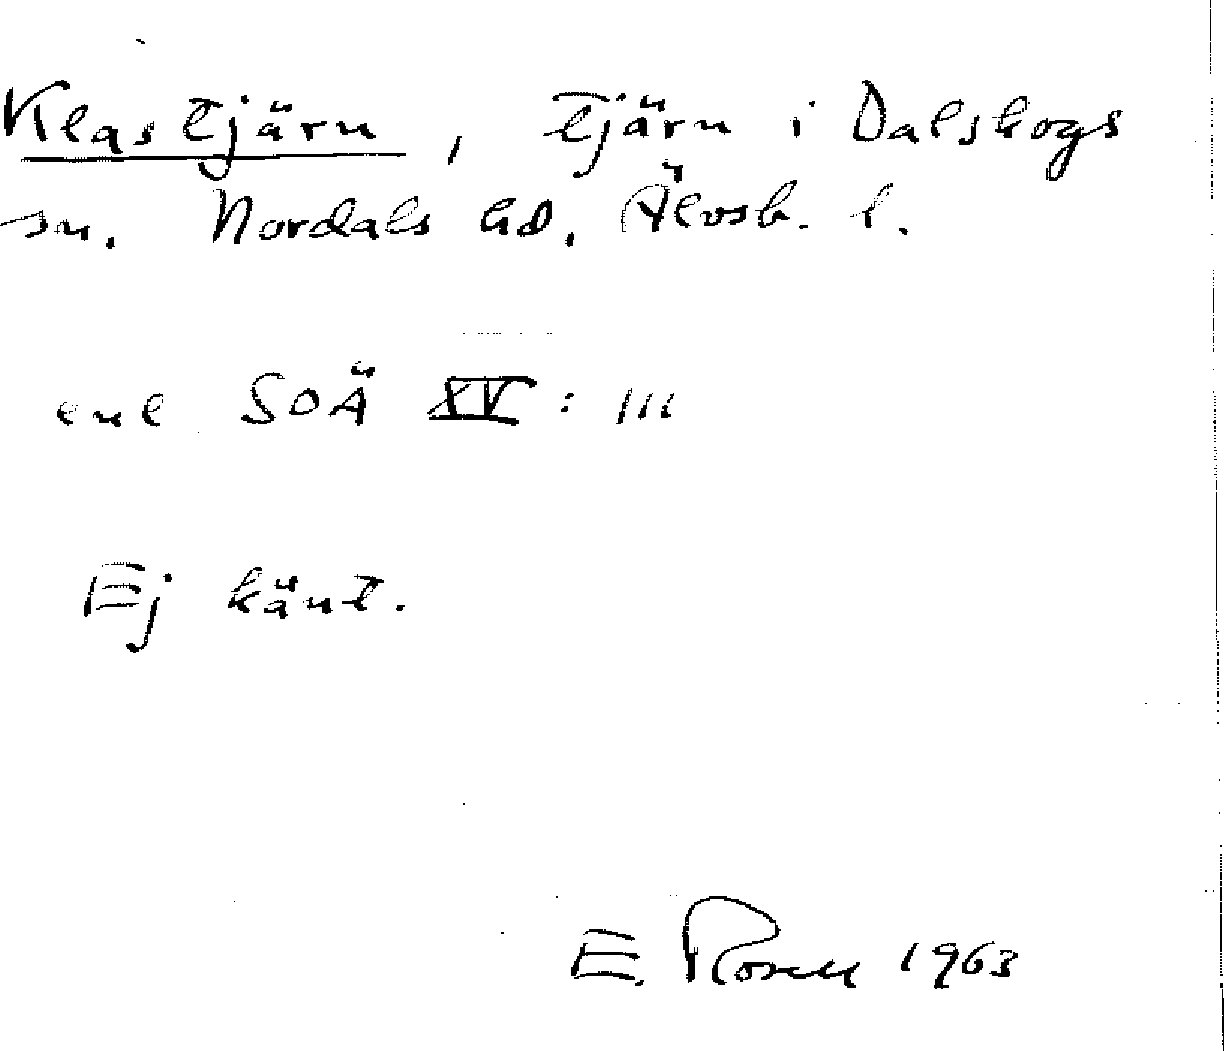 Klastjärn, tjärn i Dalskogs
sn. Nordals hd, Älvsb. l.
enl SOÄ XV: 111
Ej känt.
E. Rosell 1963